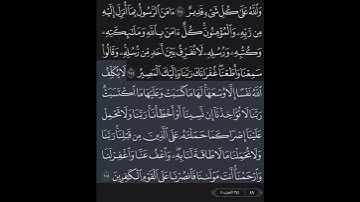 وَٱللَّهُ عَلَىٰ كُلِّ شَىْءٍ قَدِيرٌ ٢٨٤ ءَامَنَ ٱلرَّسُولُ بِمَآ أُنزِلَ إِلَيْهِ
مِن رَّبِّهِۦ وَٱلْمُؤْمِنُونَ ۚ كُلٌّ ءَامَنَ بِٱللَّهِ وَمَلَـٰٓئِكَتِهِۦ
وَكُتُبِهِۦ وَرُسُلِهِۦ لَا نُفَرِّقُ بَيْنَ أَحَدٍ مِّن رُّسُلِهِۦ ۚ وَقَالُوا۟
سَمِعْنَا وَأَطَعْنَا ۖ غُفْرَانَكَ رَبَّنَا وَإِلَيْكَ ٱلْمَصِيرُ ٢٨٥ لَا يُكَلِّفُ
ٱللَّهُ نَفْسًا إِلَّا وُسْعَهَا ۚ لَهَا مَا كَسَبَتْ وَعَلَيْهَا مَا ٱكْتَسَبَتْ ۗ
رَبَّنَا لَا تُؤَاخِذْنَآ إِن نَّسِينَآ أَوْ أَخْطَأْنَا ۚ رَبَّنَا وَلَا تَحْمِلْ
عَلَيْنَآ إِصْرًا كَمَا حَمَلْتَهُۥ عَلَى ٱلَّذِينَ مِن قَبْلِنَا ۚ رَبَّنَا
وَلَا تُحَمِّلْنَا مَا لَا طَاقَةَ لَنَا بِهِۦ ۖ وَٱعْفُ عَنَّا وَٱغْفِرْ لَنَا
وَٱرْحَمْنَآ ۚ أَنتَ مَوْلَىٰنَا فَٱنصُرْنَا عَلَى ٱلْقَوْمِ ٱلْكَـٰفِرِينَ ٢٨٦
٤٩